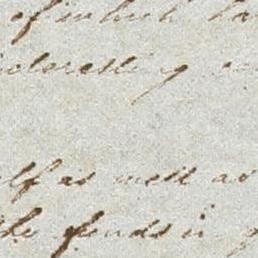 of which ha
interesting
elf as well as
the funds in